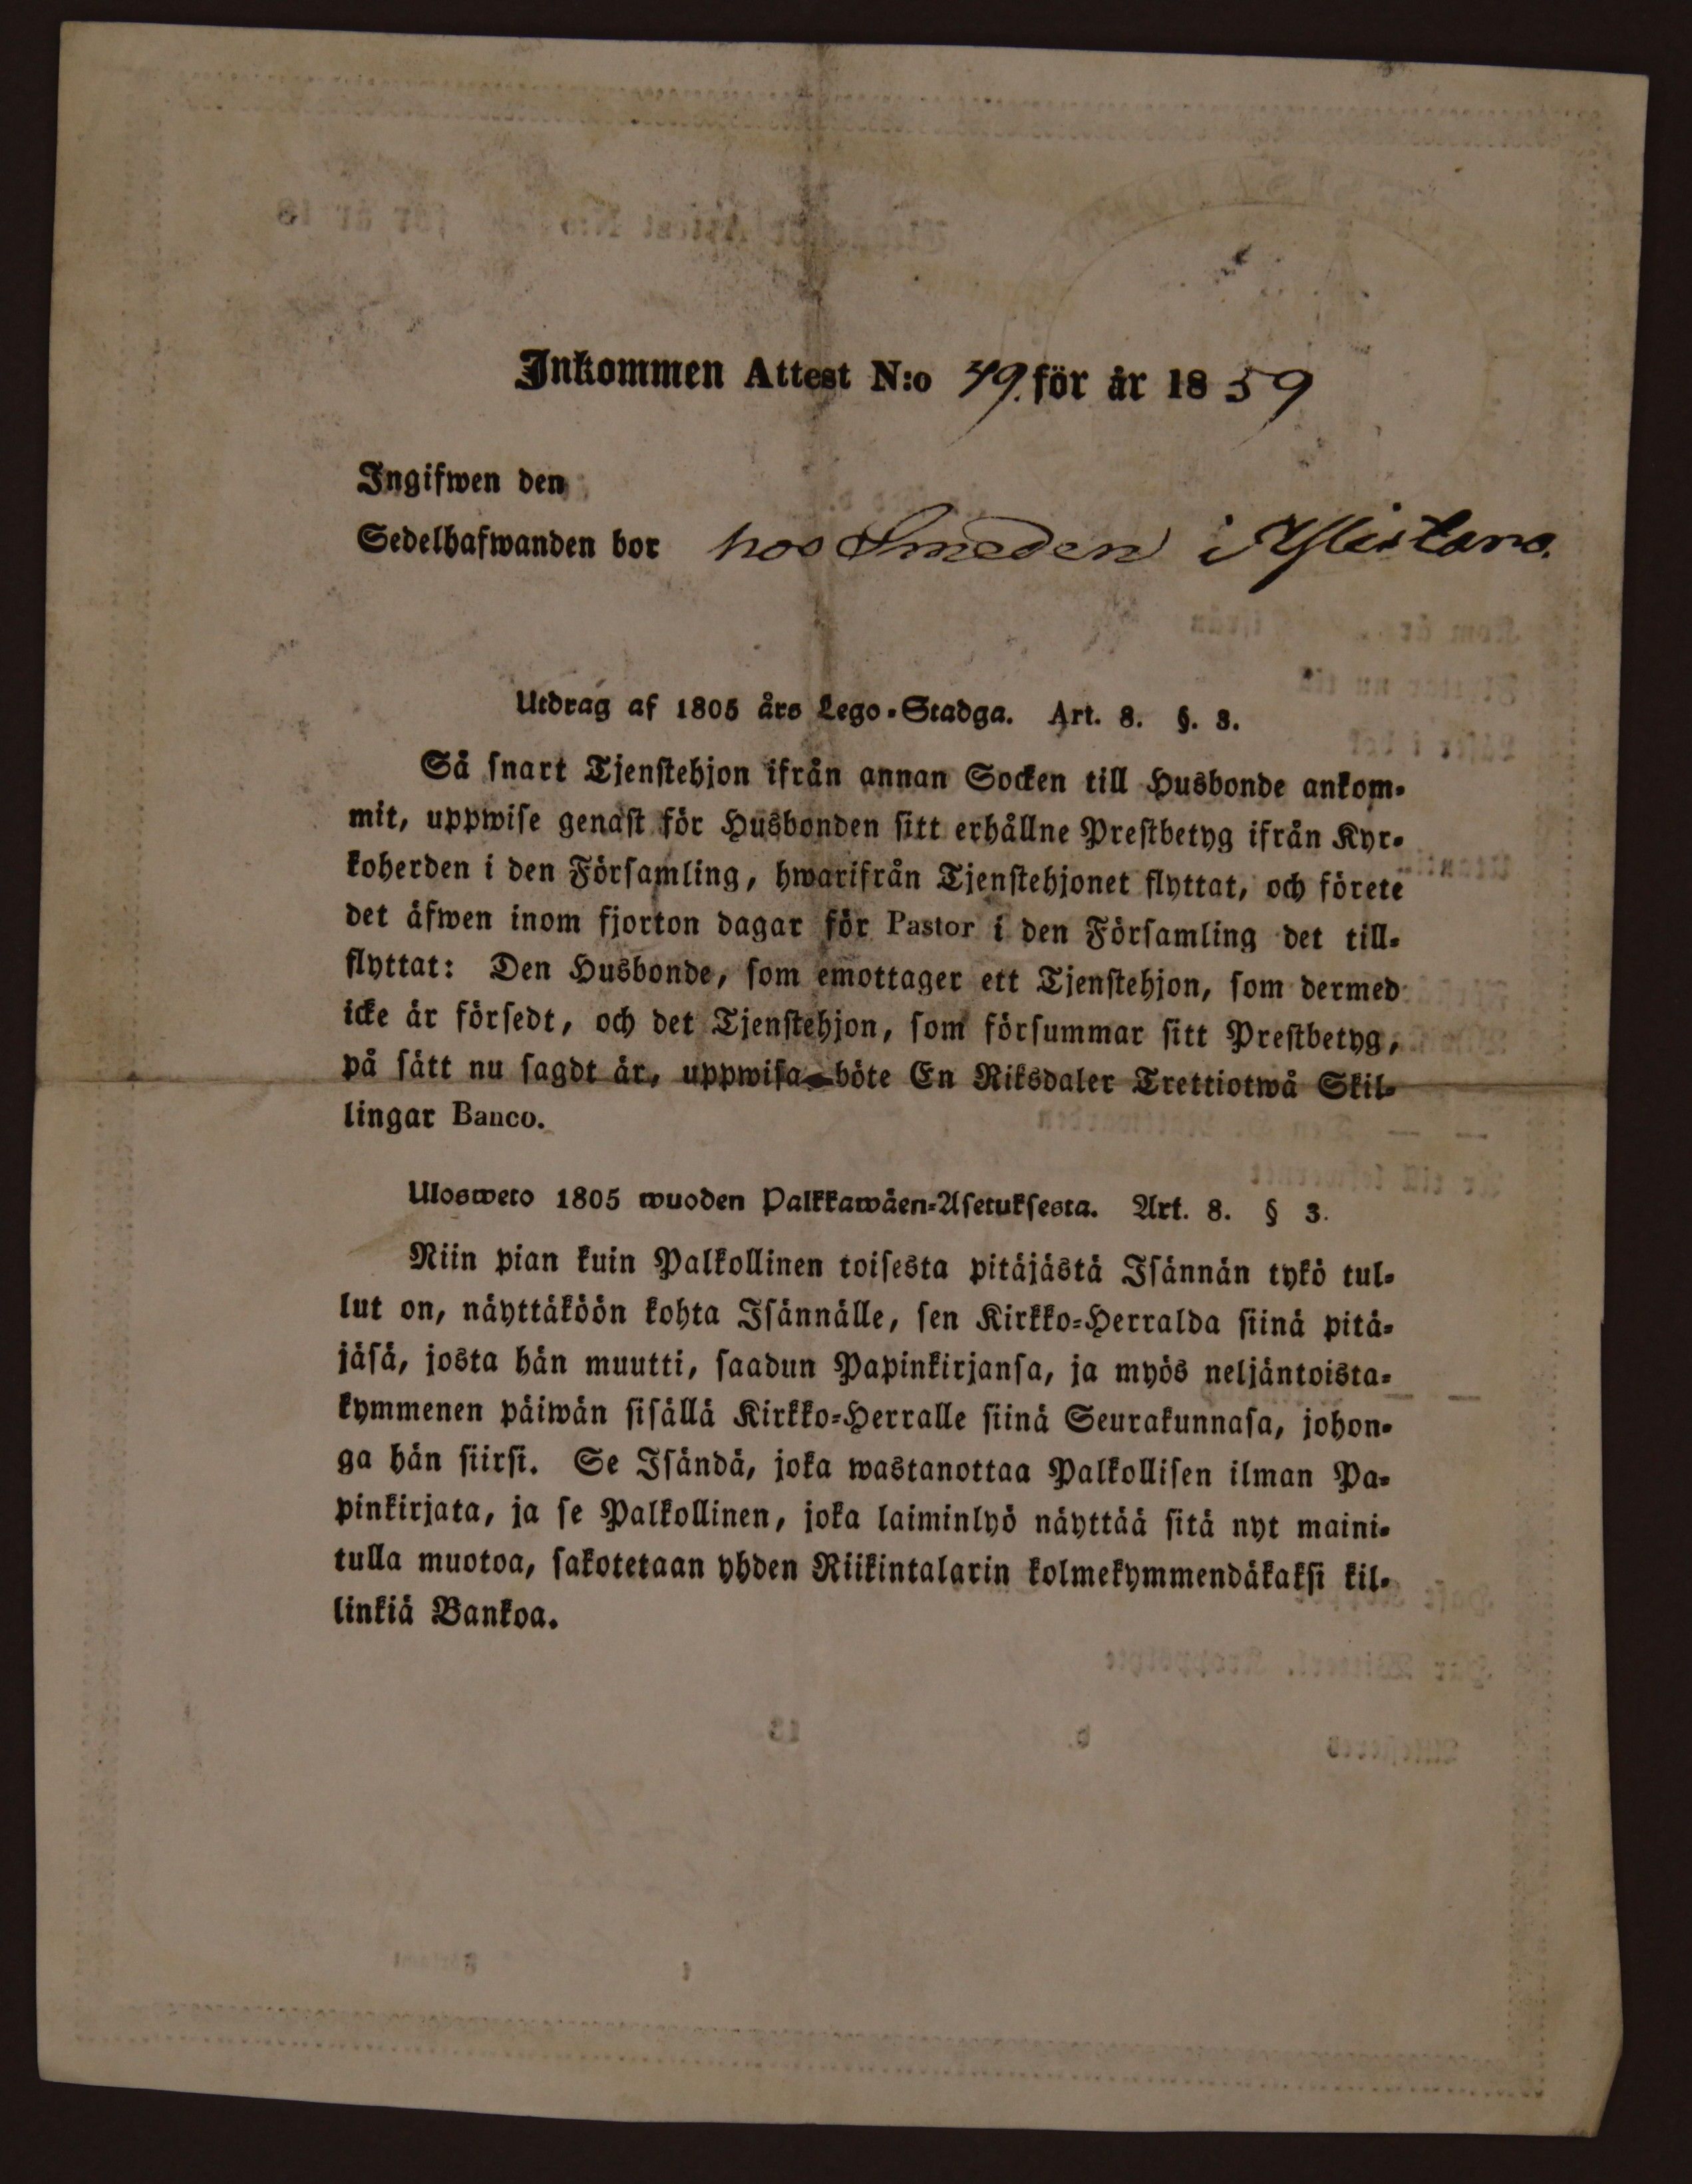 Inkommen Attest N:o 49. för år 1859
Ingifwen den
Sedelhafwanden bor hos Smeden i
Utdrag af 1805 års Lego-Stadga. Art. 8. §. 3.
Så snart Tjenstehjon ifrån annan Socken till Husbonde ankom-
mit, uppwise genast för Husbonden sitt erhållne Prestbetyg ifrån Kyr-
koherden i den Församling, hwarifrån Tjenstehjonet flyttat, och förete
det äfwen inom fjorton dagar för Pastor i den Församling det till-
flyttat: Den Husbonde, som emottager ett Tjenstehjon, som dermed
icke är försedt, och det Tjenstehjon, som försummar sitt Prestbetyg,
på sätt nu sagdt är, uppwisa böte En Riksdaler Trettiotwå Skil-
lingar Banco.
Ulosweto 1805 wuoden Palkkawäen-Asetuksesta. Art. 8. § 3.
Niin pian kuin Palkollinen toisesta pitäjästä Isännän tykö tul-
lut on, näyttäköön kohta Isännälle, sen Kirkko-Herralda siinä pitä-
jäsä, josta hän muutti, saadun Papinkirjansa, ja myös neljäntoista-
kymmenen päiwän sisällä Kirkko-Herralle siinä Seurakunnasa, johon-
ga hän siirsi. Se Isändä, joka wastanottaa Palkollisen ilman Pa-
pinkirjata, ja se Palkollinen, joka laiminlyö näyttää sitä nyt maini-
tulla muotoa, sakotetaan yhden Riikintalarin kolmekymmendäkaksi kil-
linkiä Bankoa.